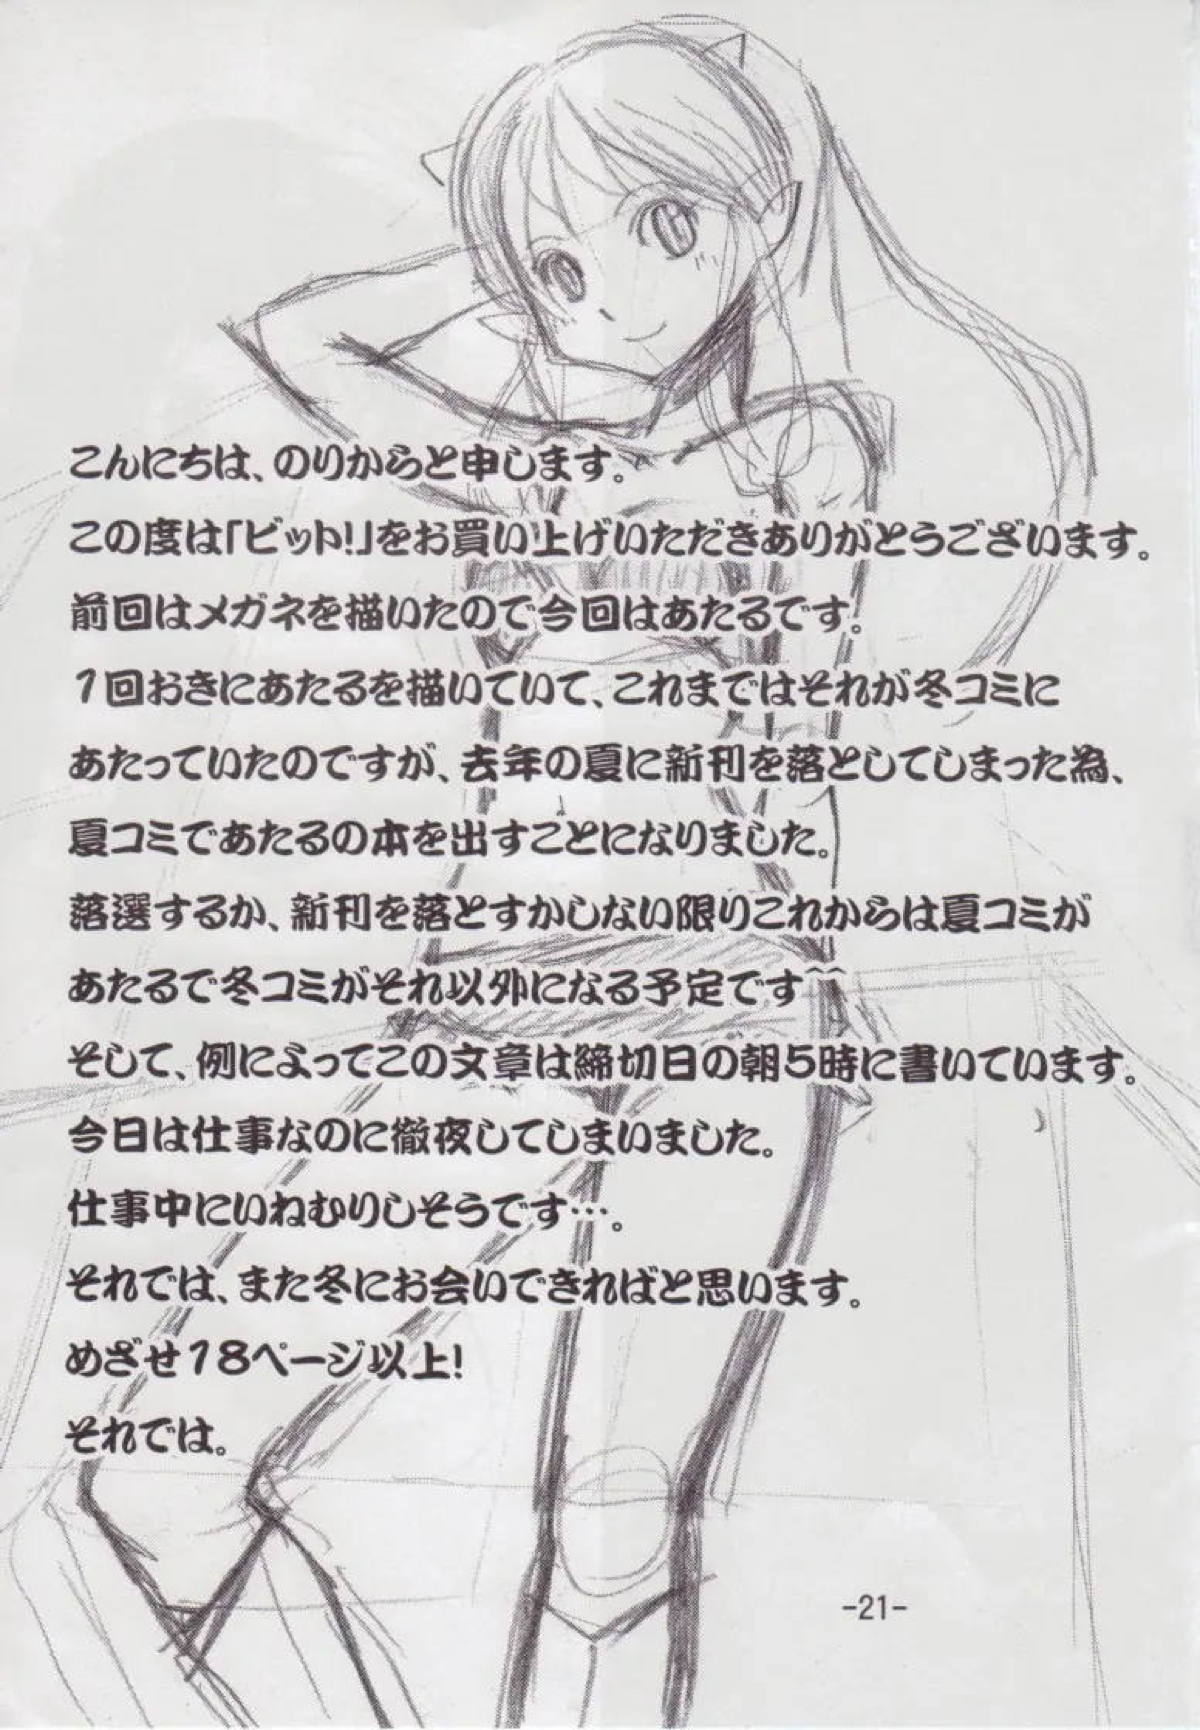 こんにちは、のりからと申します。
この度は「ビット!」をお買い上げいただきありがとうございます。
前回はメガネを描いたので今回はあたるです。
1回おきにあたるを描いていて、これまではそれが冬コミに
あたっていたのですが、去年の夏に新刊を落としてしまった為、
夏コミであたるの本を出すことになりました。
落選するか、新刊を落とすかしない限りこれからは夏コミが
あたるで冬コミがそれ以外になる予定です^^
そして、例によってこの文章は締切日の朝5時に書いています。
今日は仕事なのに徹夜してしまいました。
仕事中にいねむりしそうです…。
それでは、また冬にお会いできればと思います。
めざせ18ページ以上!
それでは。
-21-